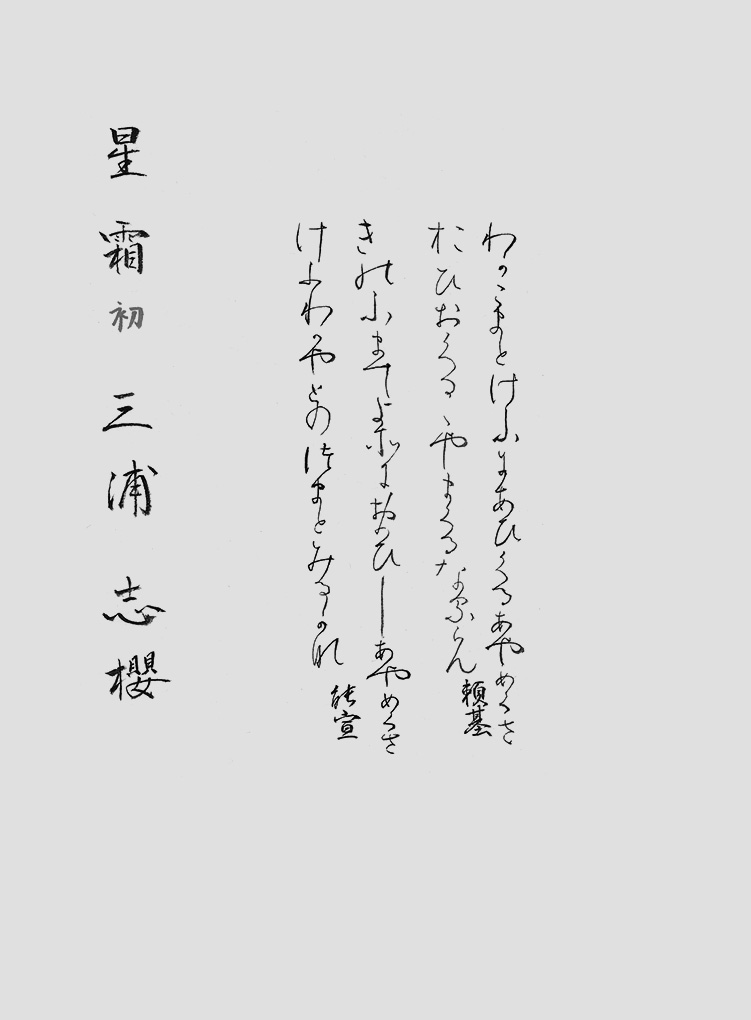 わかこまとけふにあひくるあやめくさ
おひおくるゝやまくるなるらん
頼基
きのふまてよそにおもひしあやめくさ
けふわかやとのつまとみるかな
能宣
星霜 初 三浦 志櫻